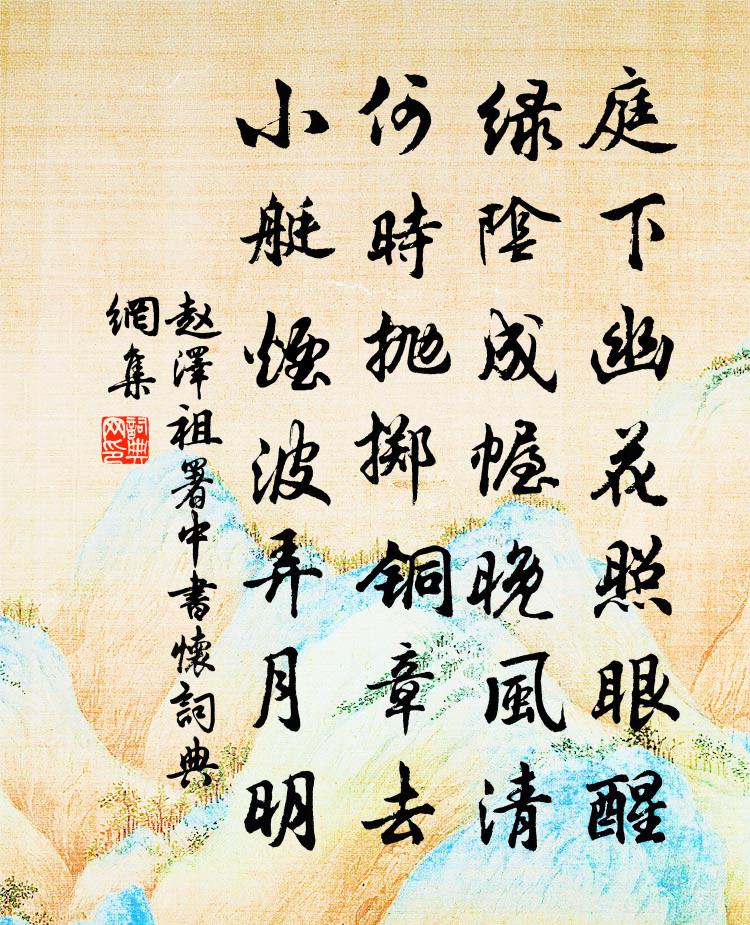 庭下幽花照眼醒
绿陰成幄晚風清
何時抛擲铜章去
小艇煙波弄月明
赵澤祖署中書懷詞典
網集
詞典
网印